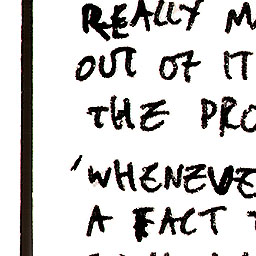 REALLY M
OUT OF IT
THE PRO
'WHENEVE
A FACT T